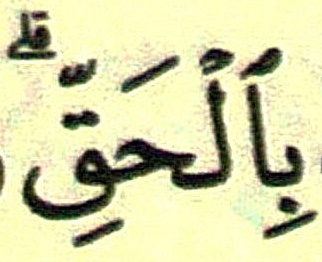 بِٱلْحَقِّ ۗ